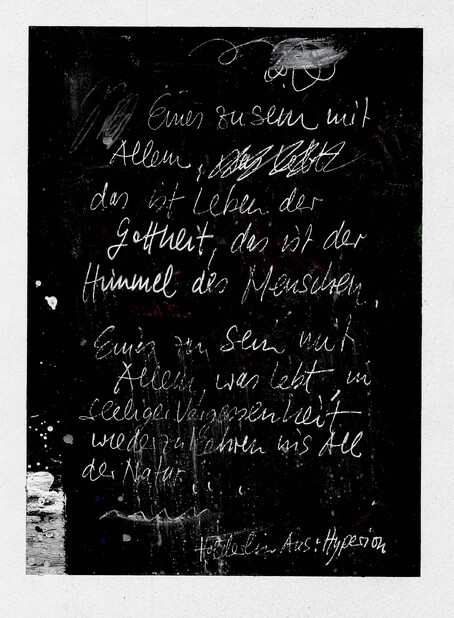 Eines zu sein mit
Allem,
das ist Leben der
Gottheit, das ist der
Himmel des Menschen.
Eines zu sein mit
Allem, was lebt, in
seeliger Vergessenheit
wiederzukehren ins All
der Natur...
Hölderlin Aus: Hyperion